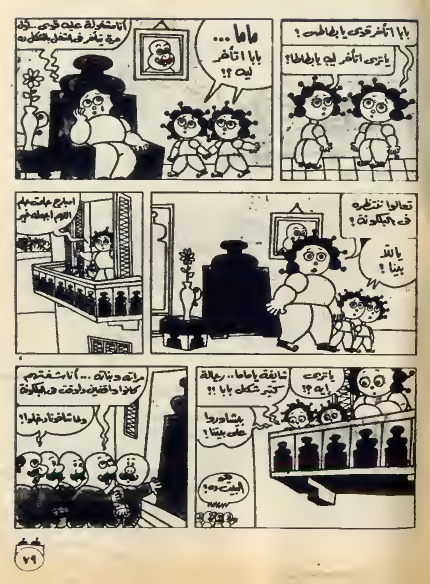 بابا اتأخر قوى يا بطاطس ؟
يا ترى اتأخر ليه يا بطاطا ؟
ماما ...
بابا اتأخر
ليه ؟!
أنا مشغولة عليه قوى .. أول
مرة يتأخر فى الشغل بالشكل ده
تعالوا ننتظره
فى البلكونة ؟
ياللا
بينا ؟
امبارح حلمت حلم
اللهم اجعله خير
يا ترى
إيه ؟!
شايفة يا ماما .. رجالة
كتير شكل بابا !!
بيشاوروا
على بيتنا !
هو
البيت ده ؟
مراتى وبناتى .. أنا شفتهم
كانوا واقفين دلوقت فى البلكونة
ولما شافونا دخلوا !!
٦
٧٩